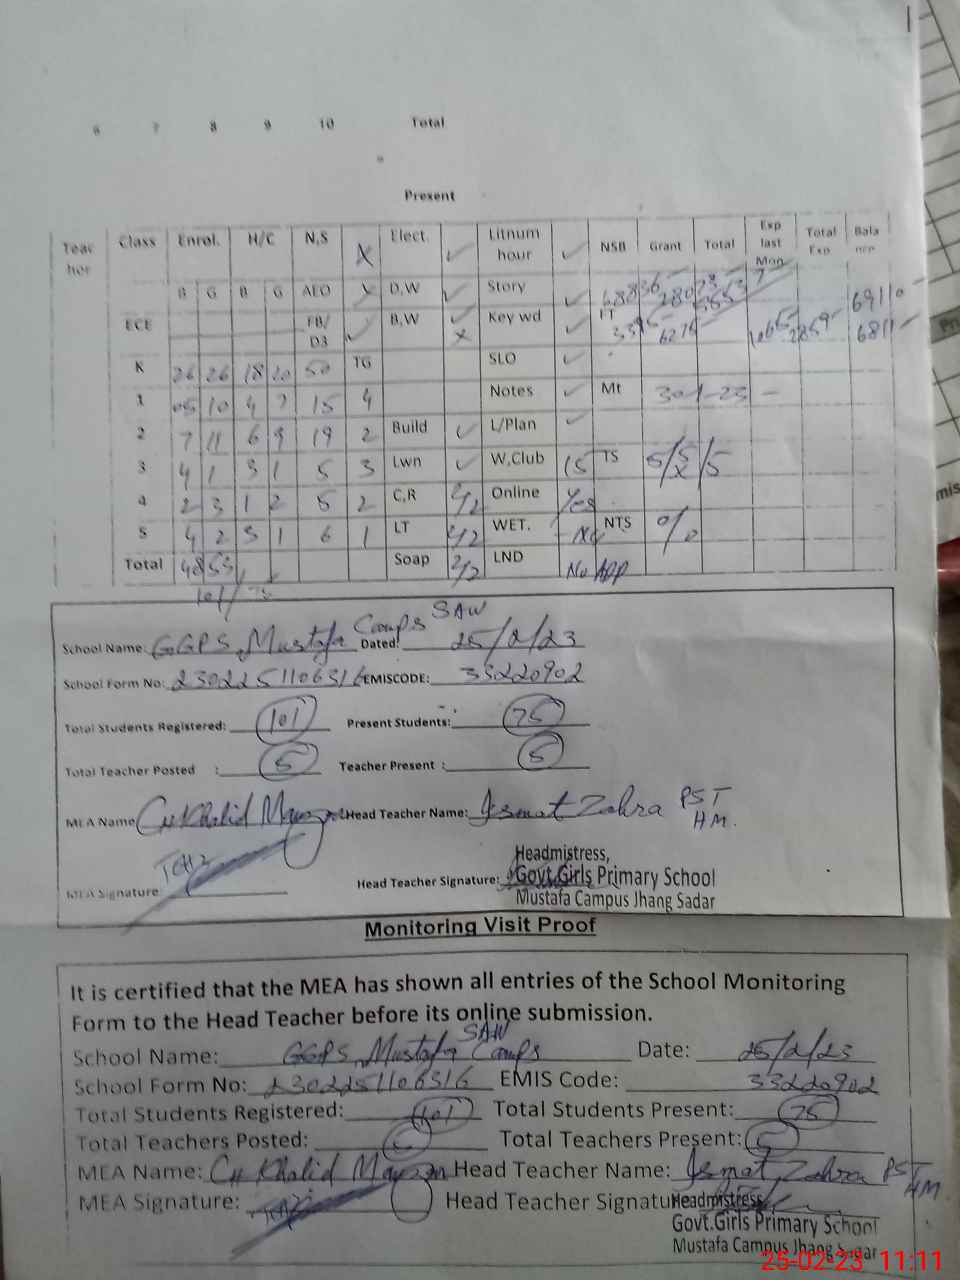 6 7 8 9 10 Total
Present
Teac her Class Enrol. H/C N,S X Elect. ✓ Litnum hour ✓ NSB Grant Total Exp last Mon Total Exp Bala nce
B G B G AEO X D,W ✓ Story ✓ 69110
ECE FB/ D3 ✓ B,W ✓ x Key wd ✓ FT 6276 2859 6811
K 26 26 18 20 50 TG SLO ✓
1 05 10 4 7 15 4 Notes ✓ Mt 30-1-23 —
2 7 11 6 9 19 2 Build ✓ L/Plan ✓
3 4 1 3 1 5 3 Lwn ✓ W,Club 15 TS 5/5
4 2 3 1 2 5 2 C,R 2/2 Online Yes
5 4 2 3 1 6 1 LT 2/2 WET. No NTS %
Total 48 53 Soap 2/2 LND No App
101/75
School Name: GGPS, Mustafa Camps SAW Dated: 25/2/23
School Form No: 2302251106316 EMISCODE: 33220902
Total Students Registered: 101 Present Students: 75
Total Teacher Posted : 5 Teacher Present : 5
MEA Name Ch Khalid Head Teacher Name: Ismat Zahra PST HM.
MEA Signature Head Teacher Signature:
Headmistress,
Govt.Girls Primary School
Mustafa Campus Jhang Sadar
Monitoring Visit Proof
It is certified that the MEA has shown all entries of the School Monitoring
Form to the Head Teacher before its online submission.
School Name: GGPS, Mustafa SAW Camps Date: 25/2/23
School Form No: 2302251106316 EMIS Code: 33220902
Total Students Registered: 101 Total Students Present: 75
Total Teachers Posted: 5 Total Teachers Present: 5
MEA Name: Ch Khalid Head Teacher Name: Ismat Zahra PST HM
MEA Signature: Head Teacher Signature
Headmistress
Govt.Girls Primary School
Mustafa Campus Jhang Sadar
25-02-23 11:11